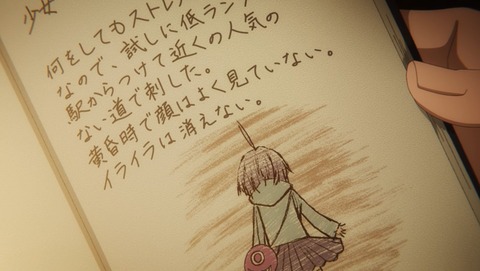 少女
何をしてもストレ
なので、試しに低ラン
駅からつけて近くの人気の
ない道で刺した。
黄昏時で顔はよく見ていない。
イライラは消えない。